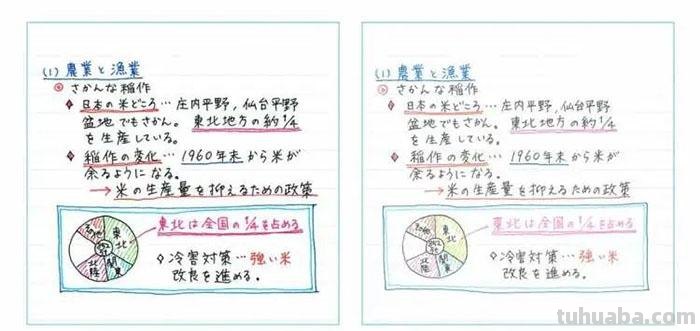 (1) 農業と漁業
◎ さかんな稲作
◆ 日本の米どころ… 庄内平野, 仙台平野
盆地でもさかん。東北地方の約1/4
を生産している。
◆ 稲作の変化… 1960年末から米が
余るようになる。
→ 米の生産量を抑えるための政策
その他
東北
関東
北陸
東北は全国の1/4を占める
◇冷害対策…強い米
改良を進める。
(1) 農業と漁業
◎ さかんな稲作
◆ 日本の米どころ… 庄内平野, 仙台平野
盆地でもさかん。東北地方の約1/4
を生産している。
◆ 稲作の変化… 1960年末から米が
余るようになる。
→ 米の生産量を抑えるための政策
その他
東北
関東
北陸
東北は全国の1/4を占める
◇冷害対策…強い米
改良を進める。
tuhuaba.com